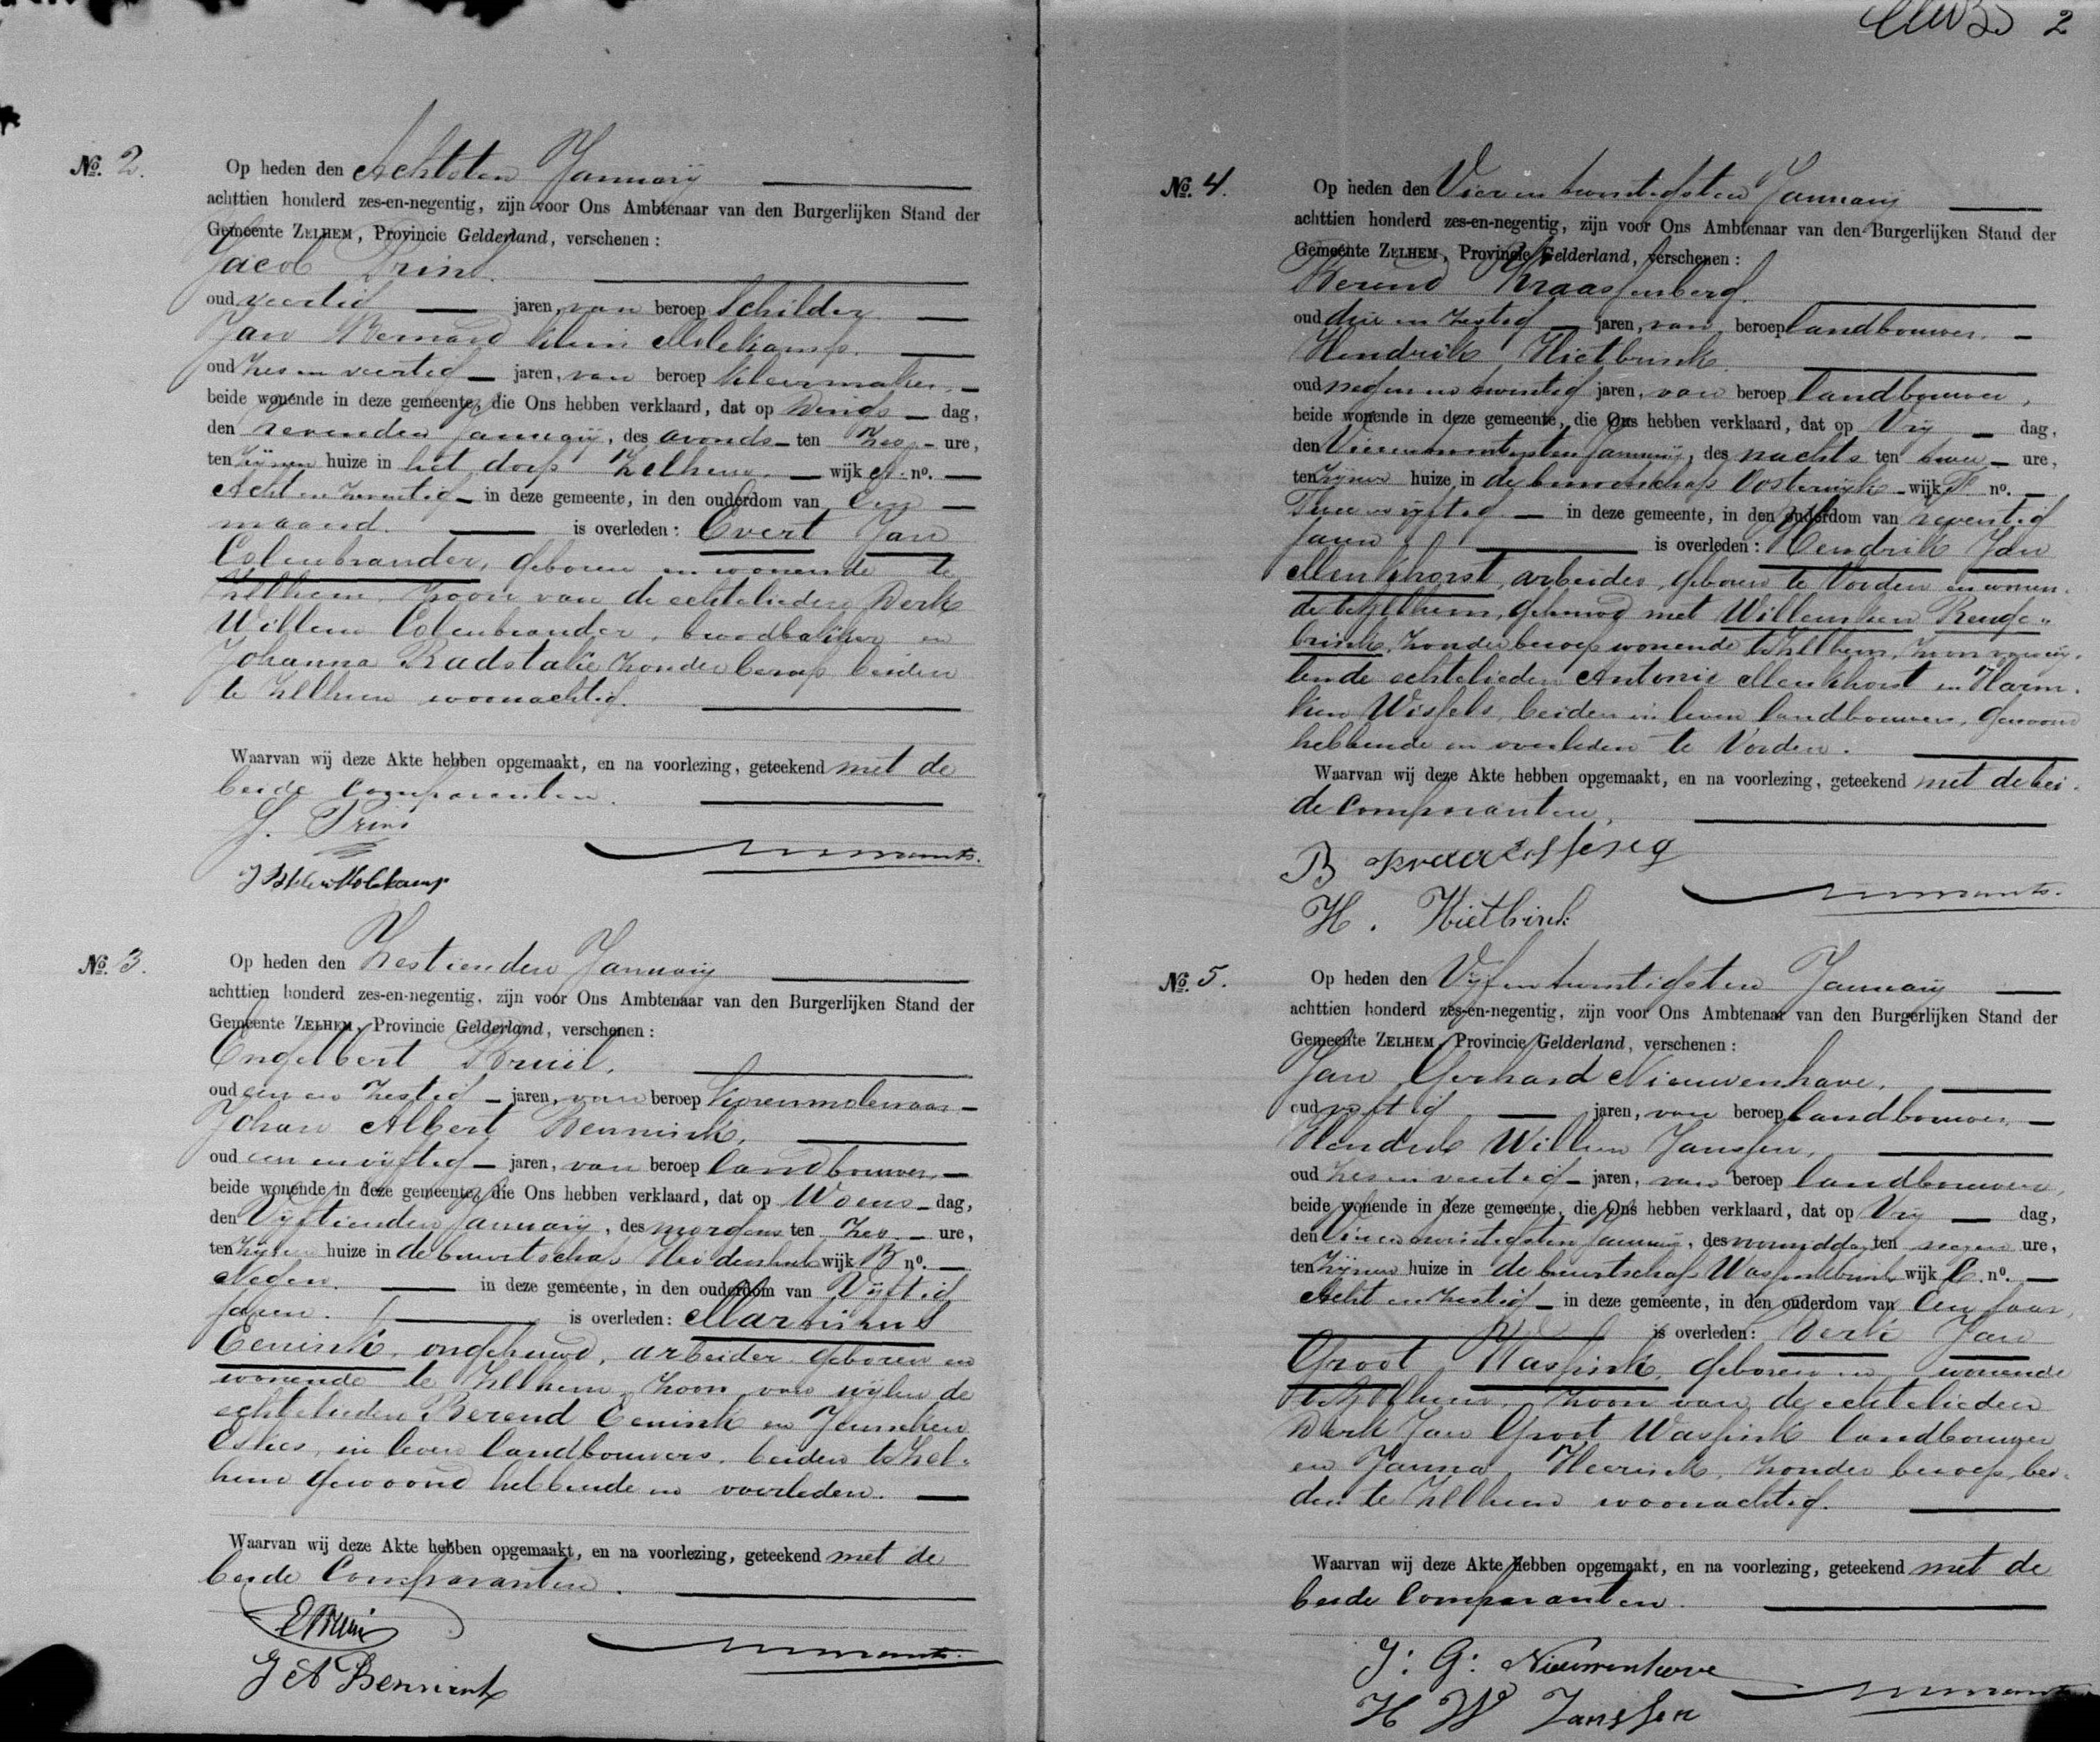 2
No. 2.
Op heden den Achtsten January
achttien honderd zes-en-negentig, zijn voor Ons Ambtenaar van den Burgerlijken Stand der
Gemeente ZELHEM, Provincie Gelderland, verschenen :
Jacob Prins.
oud veertig jaren, van beroep Schilder
Jan Bernard Klein Molekamp.
oud zes en veertig jaren, van beroep kleermaker,
beide wonende in deze gemeente, die Ons hebben verklaard, dat op Dings dag,
den zevenden January, des avonds ten zes ure,
ten zijnen huize in het dorp Zelhem, wijk A. no.
Acht en zeventig in deze gemeente, in den ouderdom van Een
maand. is overleden : Evert Jan
Colenbrander, geboren en wonende te
Zelhem, zoon van de echtelieden Derk
Willem Colenbrander, broodbakker en
Johanna Radstake zonder beroep beiden
te Zelhem woonachtig.
Waarvan wij deze Akte hebben opgemaakt, en na voorlezing, geteekend met de
beide Comparanten.
J. Prins
J B Klein Molekamp
No. 3.
Op heden den Zestienden January
achttien honderd zes-en-negentig, zijn voor Ons Ambtenaar van den Burgerlijken Stand der
Gemeente ZELHEM, Provincie Gelderland, verschenen :
Engelbert Bruil,
oud een en zestig jaren, van beroep Korenmolenaar
Johan Albert Bennink,
oud een en vijftig jaren, van beroep landbouwer,
beide wonende in deze gemeente, die Ons hebben verklaard, dat op Woens dag,
den Vijftienden January, des morgens ten zes ure,
ten zijnen huize in de buurtschap Heidenhoek wijk B no.
Negen. in deze gemeente, in den ouderdom van Vijftig
jaren. is overleden : Marinus
Eenink, ongehuwd, arbeider geboren en
wonende te Zelhem, zoon van wijlen de
echtelieden Berend Eenink en Jenneken
Eskes, in leven landbouwers, beiden te Zel-
hem gewoond hebbende en overleden.
Waarvan wij deze Akte hebben opgemaakt, en na voorlezing, geteekend met de
beide Comparanten.
E Bruil
J A Bennink
No. 4.
Op heden den Vier en twintigsten January
achttien honderd zes-en-negentig, zijn voor Ons Ambtenaar van den Burgerlijken Stand der
Gemeente ZELHEM, Provincie Gelderland, verschenen :
Berend Kraassenberg.
oud drie en zestig jaren, van beroep landbouwer,
Hendrik Hietbrink.
oud negen en twintig jaren, van beroep landbouwer,
beide wonende in deze gemeente, die Ons hebben verklaard, dat op Vrij dag,
den Vierentwintigsten January, des nachts ten twee ure,
ten zijnen huize in de buurtschap Oosterwijk wijk F no.
Twee en vijftig in deze gemeente, in den ouderdom van zeventig
jaren is overleden : Hendrik Jan
Menkhorst, arbeider, geboren te Vorden en wonen-
de te Zelhem, gehuwd met Willemken Renge-
brink, zonder beroep wonende te Zelhem, zoon van wij-
len de echtelieden Antonie Menkhorst en Harm-
ken Wissels, beiden in leven landbouwers, gewoond
hebbende en overleden te Vorden.
Waarvan wij deze Akte hebben opgemaakt, en na voorlezing, geteekend met de bei-
de Comparanten,
B Kraassenberg
H. Hietbrink
No. 5.
Op heden den Vijf en twintigsten January
achttien honderd zes-en-negentig, zijn voor Ons Ambtenaar van den Burgerlijken Stand der
Gemeente ZELHEM, Provincie Gelderland, verschenen :
Jan Gerhard Nieuwenhave,
oud vijftig jaren, van beroep landbouwer
Hendrik Willem Janssen,
oud zes en veertig jaren, van beroep landbouwer,
beide wonende in deze gemeente, die Ons hebben verklaard, dat op Vrij dag,
den Vierentwintigsten January, des voormiddags ten negen ure,
ten zijnen huize in de buurtschap wijk no.
Acht en zestig in deze gemeente, in den ouderdom van Een jaar,
is overleden : Derk Jan
Groot Waspink, geboren en wonende
te Zelhem, zoon van de echtelieden
Derk Jan Groot Waspink landbouwer
en Janna Heerink, zonder beroep, bei-
den te Zelhem woonachtig.
Waarvan wij deze Akte hebben opgemaakt, en na voorlezing, geteekend met de
beide Comparanten.
J: G: Nieuwenhave
H W Janssen